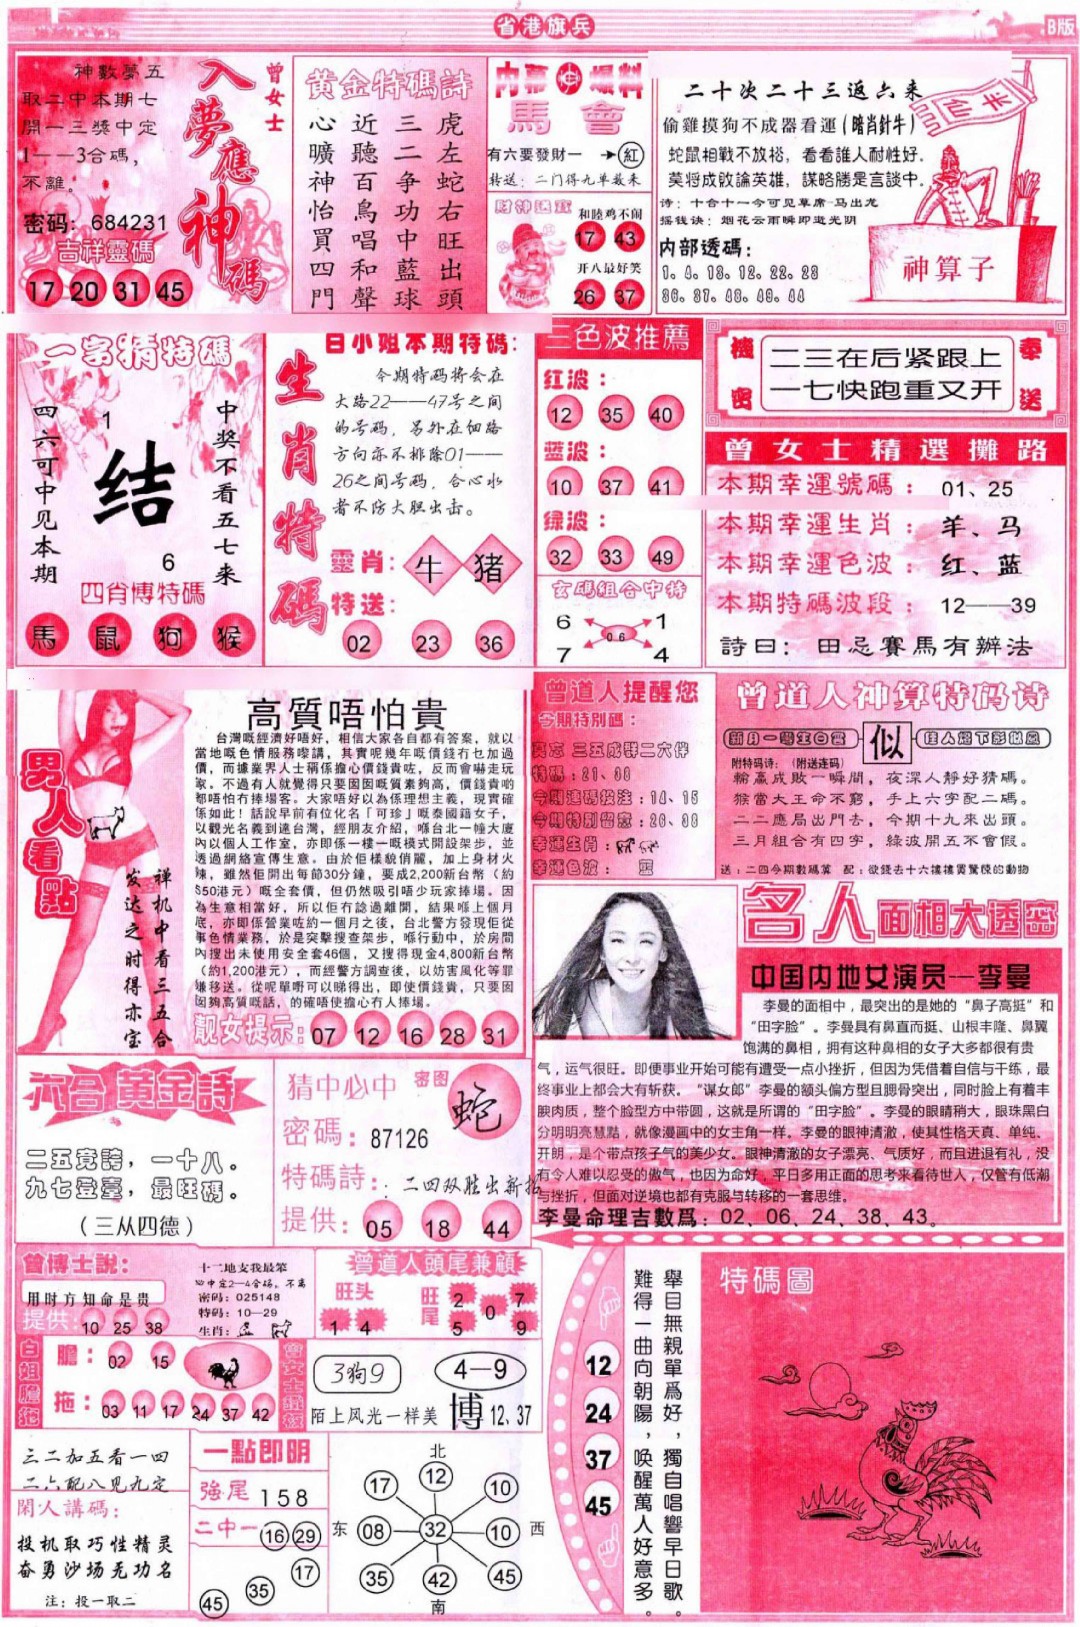 省港旗兵
B版
神數夢五
取二中本期七
開一三獎中定
1——3合碼，
不離。
密码：684231
吉祥靈碼
17 20 31 45
入夢應神碼
曾女士
黃金特碼詩
心近三虎
曠聽二左
神百争蛇
怡鳥功右
買唱中旺
四和藍出
門聲球頭
内幕爆料
馬會
有六要發財一→紅
转送：二门得九单数来
財神透蔽
和陸鸡不闹
17 43
开八最好笑
26 37
二十次二十三返六来
偷雞摸狗不成器看運(暗肖針牛)
蛇鼠相戰不放裕，看看誰人耐性好.
莫将成敗論英雄，謀略勝是言談中.
诗：十合十一今可见草席-马出龙
摇钱诀：烟花云雨瞬即逝光阴
内部透碼：
神算子
一字猜特碼
四六可中见本期
1
结
6
中奖不看五七来
四肖博特碼
馬 鼠 狗 猴
生肖特碼
白小姐本期特碼：
今期特码将会在
大路22——47号之间
的号码，另外在细路
方向亦不排除01——
26之间号码，合心水
者不防大胆出击。
靈肖：牛 猪
特送：
02 23 36
三色波推薦
红波：
12 35 40
蓝波：
10 37 41
绿波：
32 33 49
玄碼組合中特
6 1
06
7 4
機密
二三在后紧跟上
一七快跑重又开
奉送
曾女士精選攤路
本期幸運號碼：01、25
本期幸運生肖：羊、马
本期幸運色波：红、蓝
本期特碼波段：12——39
詩曰：田忌賽馬有辦法
男人看點
禅机中看三五合
发达之时得亦宝
高質唔怕貴
台灣嘅經濟好唔好，相信大家各自都有答案，就以
當地嘅色情服務嚟講，其實呢幾年嘅價錢冇乜加過
價，而據業界人士稱係擔心價錢貴咗，反而會嚇走玩
家。不過有人就覺得只要因囡嘅質素夠高，價錢貴啲
都唔怕冇捧場客。大家唔好以為係理想主義，現實確
係如此！話說早前有位化名「可珍」嘅泰國籍女子，
以觀光名義到達台灣，經朋友介紹，喺台北一幢大廈
內以個人工作室，亦即係一樓一嘅模式開設架步，並
透過網絡宣傳生意。由於佢樣貌俏麗，加上身材火
辣，雖然佢開出每節30分鐘，要成2,200新台幣（約
$50港元）嘅全套價，但仍然吸引唔少玩家捧場。因
為生意相當好，所以佢冇諗過離開，結果喺上個月
底，亦即係營業咗約一個月之後，台北警方發現佢從
事色情業務，於是突擊搜查架步，喺行動中，於房間
內搜出未使用安全套46個，又搜得現金4,800新台幣
（約1,200港元），而經警方調查後，以妨害風化等罪
嫌移送。從呢單嘢可以睇得出，即使價錢貴，只要因
囡夠高質嘅話，的確唔使擔心冇人捧場。
靚女提示：07 12 16 28 31
曾道人提醒您
今期特別碼：
莫忘 三五成群二六伴
特碼：21、38
今期連碼投注：14、15
今期特別留意：28、38
幸運生肖：
幸運色波：藍
曾道人神算特码诗
新月一彎生日當
似
佳人燈下影似鳳
附特码诗：（附送连码）
輸贏成敗一瞬間，夜深人靜好猜碼。
猴當大王命不窮，手上六字配二碼。
二二應局出門去，今期十九来出頭。
三月組合有四字，綠波開五不會假。
送：二四今期數碼算 配：欲錢去十六樓樓買驚慌的動物
名人面相大透密
中国内地女演员—李曼
李曼的面相中，最突出的是她的“鼻子高挺”和
“田字脸”。李曼具有鼻直而挺、山根丰隆、鼻翼
饱满的鼻相，拥有这种鼻相的女子大多都很有贵
气，运气很旺。即便事业开始可能有遭受一点小挫折，但因为凭借着自信与干练，最
终事业上都会大有斩获。“谋女郎”李曼的额头偏方型且腮骨突出，同时脸上有着丰
腴肉质，整个脸型方中带圆，这就是所谓的“田字脸”。李曼的眼睛稍大，眼珠黑白
分明明亮慧黠，就像漫画中的女主角一样。李曼的眼神清澈，使其性格天真、单纯、
开朗，是个带点孩子气的美少女。眼神清澈的女子漂亮、气质好，而且进退有礼，没
有令人难以忍受的傲气，也因为命好，平日多用正面的思考来看待世人，仅管有低潮
与挫折，但面对逆境也都有克服与转移的一套思维。
李曼命理吉數爲：02、06、24、38、43。
六合黄金詩
二五竞誇，一十八。
九七登臺，最旺碼。
（三从四德）
猜中必中 密图 蛇
密碼：87126
特碼詩：二四双胜出新招
提供：05 18 44
曾博士説：
用时方知命是贵
提供：10 25 38
十二地支我最笨
必中定2—4合码。不离
密码：025148
特码：10—29
生肖：
曾道人頭尾兼顧
旺头
1 4
旺尾
2 7
0
5 9
白姐膽拖
膽：02 15
拖：03 11 17 24 37 42
3狗9
4—9
陌上风光一样美
博12、37
三二加五看一四
二六配八见九定
閑人講碼：
投机取巧性精灵
奋勇沙场无功名
注：投一取二
一點即明
強尾 158
二中一 16 29
17
35
45
北
12
17 10
东 08 32 10 西
35 45
42
南
12
24
37
45
舉目無親單爲好，獨自唱響早日歌。
難得一曲向朝陽，唤醒萬人好意多。
特碼圖